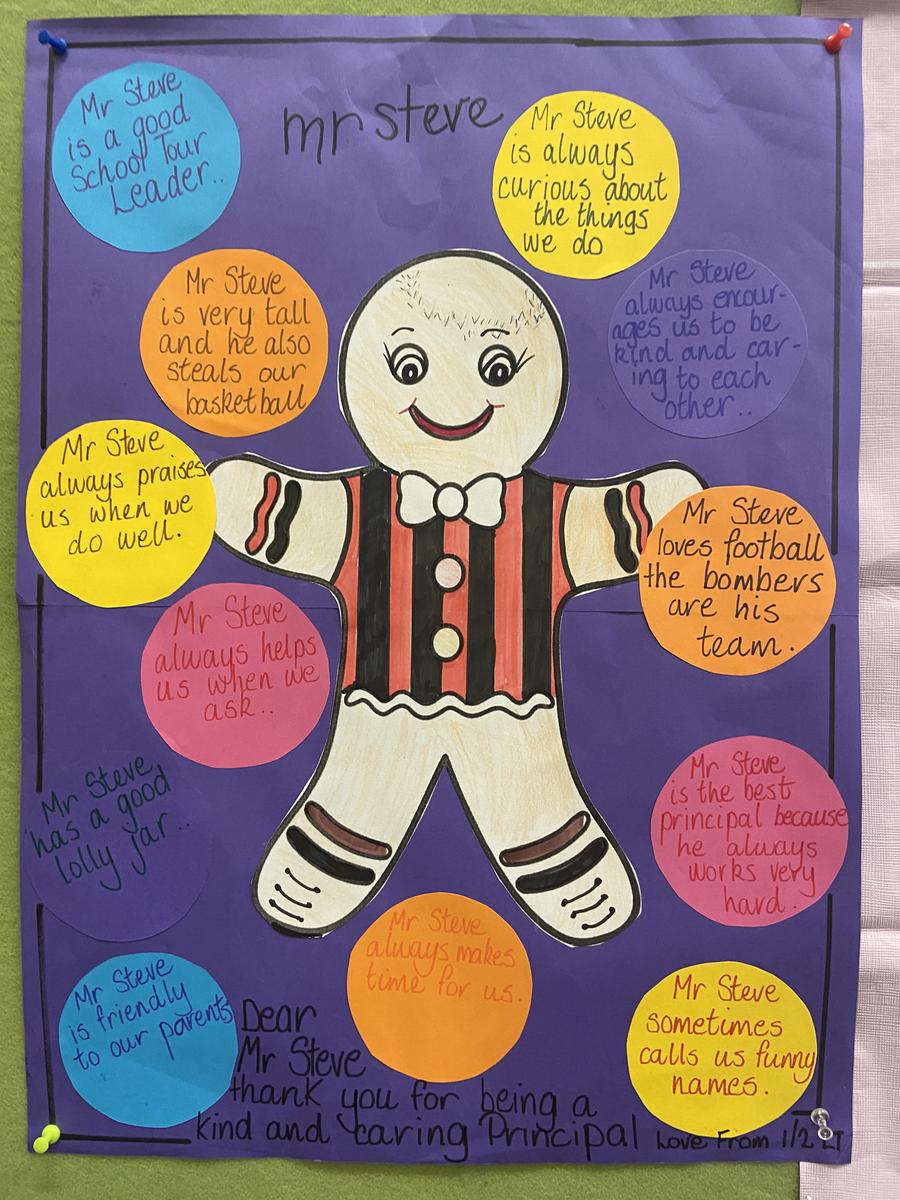 mr steve
Mr Steve
is a good
School Tour
Leader..
Mr Steve
is always
curious about
the things
we do
Mr Steve
is very tall
and he also
steals our
basketball
Mr Steve
always encour-
ages us to be
kind and car-
ing to each
other..
Mr Steve
always praises
us when we
do well.
Mr Steve
loves football
the bombers
are his
team.
Mr Steve
always helps
us when we
ask..
Mr Steve
has a good
lolly jar..
Mr Steve
is the best
principal because
he always
works very
hard.
Mr Steve
always makes
time for us.
Mr Steve
is friendly
to our parents
Mr Steve
sometimes
calls us funny
names.
Dear
Mr Steve
thank you for being a
kind and caring Principal
Love From 1/2 LT